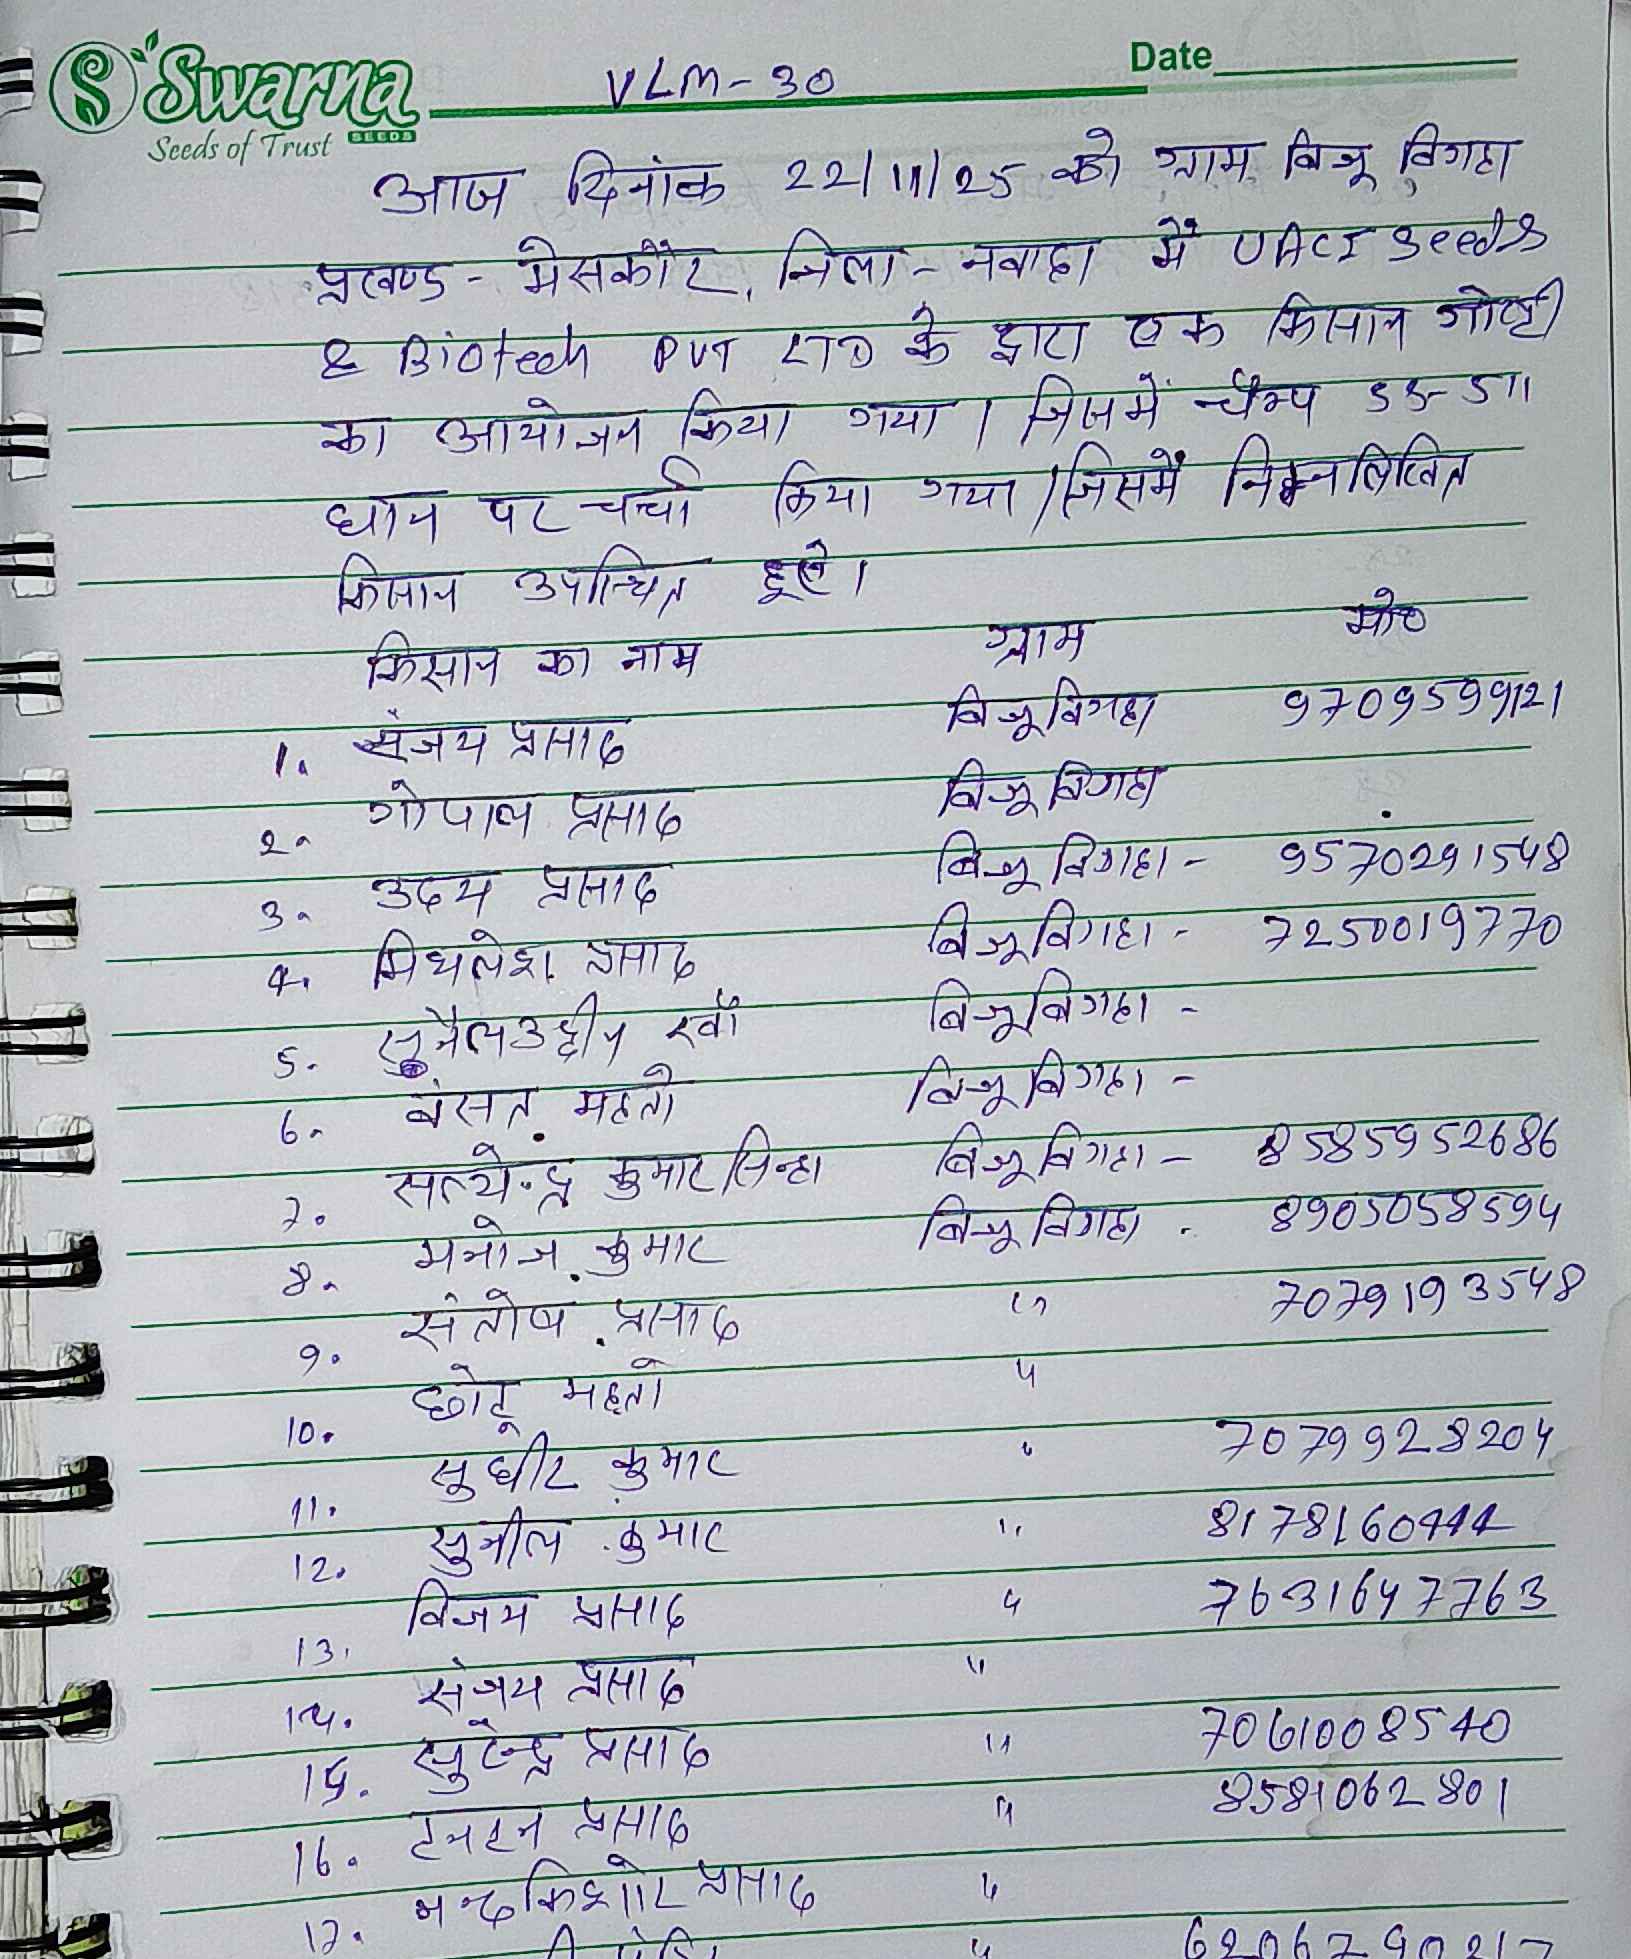 Swarna
SEEDS
Seeds of Trust
VLM-30
Date
आज दिनांक 22/11/25 को ग्राम बिजू बिगहा
प्रखण्ड - मेसकौर, जिला - नवादा में UACI Seeds
& Biotech PVT LTD के द्वारा एक किसान गोष्ठी
का आयोजन किया गया। जिसमें चैम्प SS-511
धान पर चर्चा किया गया। जिसमें निम्नलिखित
किसान उपस्थित हुए।
किसान का नाम ग्राम मो०
1. संजय प्रसाद बिजू बिगहा 9709599121
2. गोपाल प्रसाद बिजू बिगहा
3. उदय प्रसाद बिजू बिगहा - 9570291548
4. मिथलेश प्रसाद बिजू बिगहा - 7250019770
5. खाँ बिजू बिगहा -
6. बंसत महतो बिजू बिगहा -
7. सत्येन्द्र कुमार सिन्हा बिजू बिगहा - 8585952686
8. मनोज कुमार बिजू बिगहा . 8905058594
9. संतोष प्रसाद " 7079193548
10. छोटू महतो "
11. सुधीर कुमार " 7079928204
12. सुनील कुमार " 8178160444
13. विजय प्रसाद " 7631647763
14. संजय प्रसाद "
15. सुरेन्द्र प्रसाद " 7061008540
16. टनटन प्रसाद " 8581062801
17. नन्दकिशोर प्रसाद "
" 6206790217